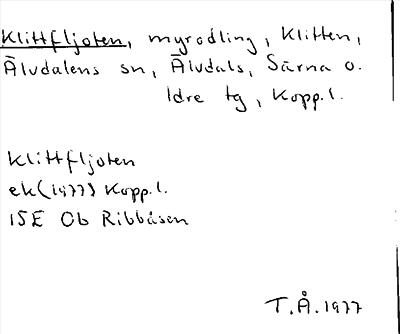 Klittfljoten, myrodling, Klitten,
Älvdalens sn, Älvdals, Särna o.
Idre tg, Kopp.l.
Klittfljoten
ek(1977) Kopp.l.
15E Ob Ribbåsen
T.Å.1977